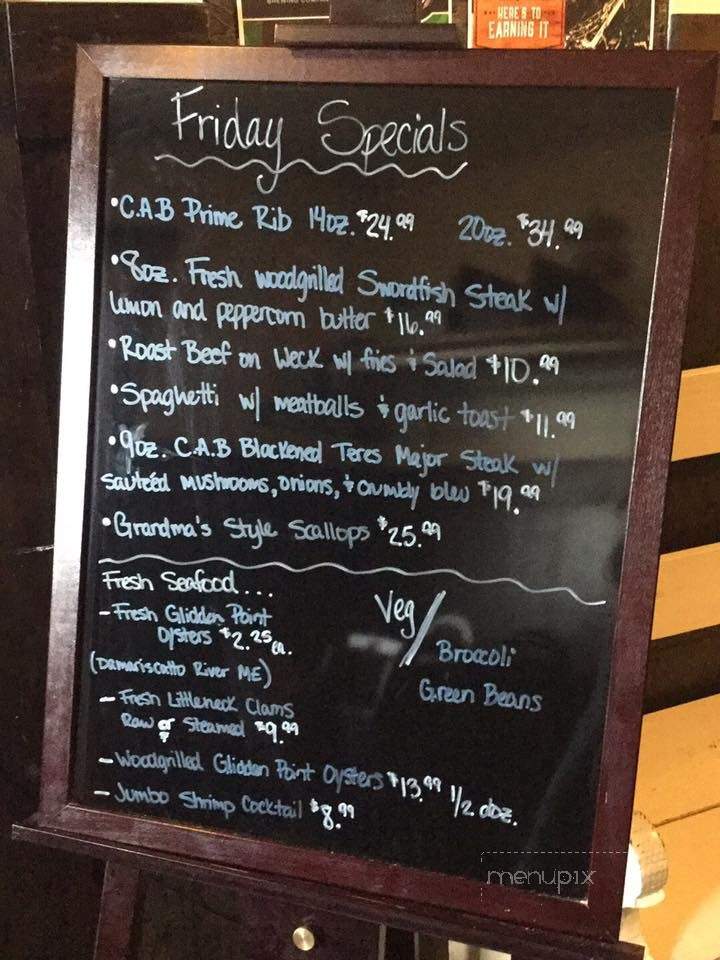 HERE'S TO
EARNING IT
Friday Specials
•C.A.B Prime Rib 14oz. $24.99 20oz. $34.99
•8oz. Fresh woodgrilled Swordfish Steak w/
lemon and peppercorn butter $16.99
•Roast Beef on Weck w/ fries & Salad $10.99
•Spaghetti w/ meatballs & garlic toast $11.99
•9oz. C.A.B Blackened Teres Major Steak w/
sautéed mushrooms, onions, & crumbly bleu $19.99
•Grandma's Style Scallops $25.99
Fresh Seafood...
- Fresh Glidden Point
Oysters $2.25 ea.
(Damariscatto River ME)
- Fresh Littleneck Clams
Raw or Steamed $9.99
- Woodgrilled Glidden Point Oysters $13.99 1/2 doz.
- Jumbo Shrimp Cocktail $8.99
Veg/
Broccoli
Green Beans
menupix